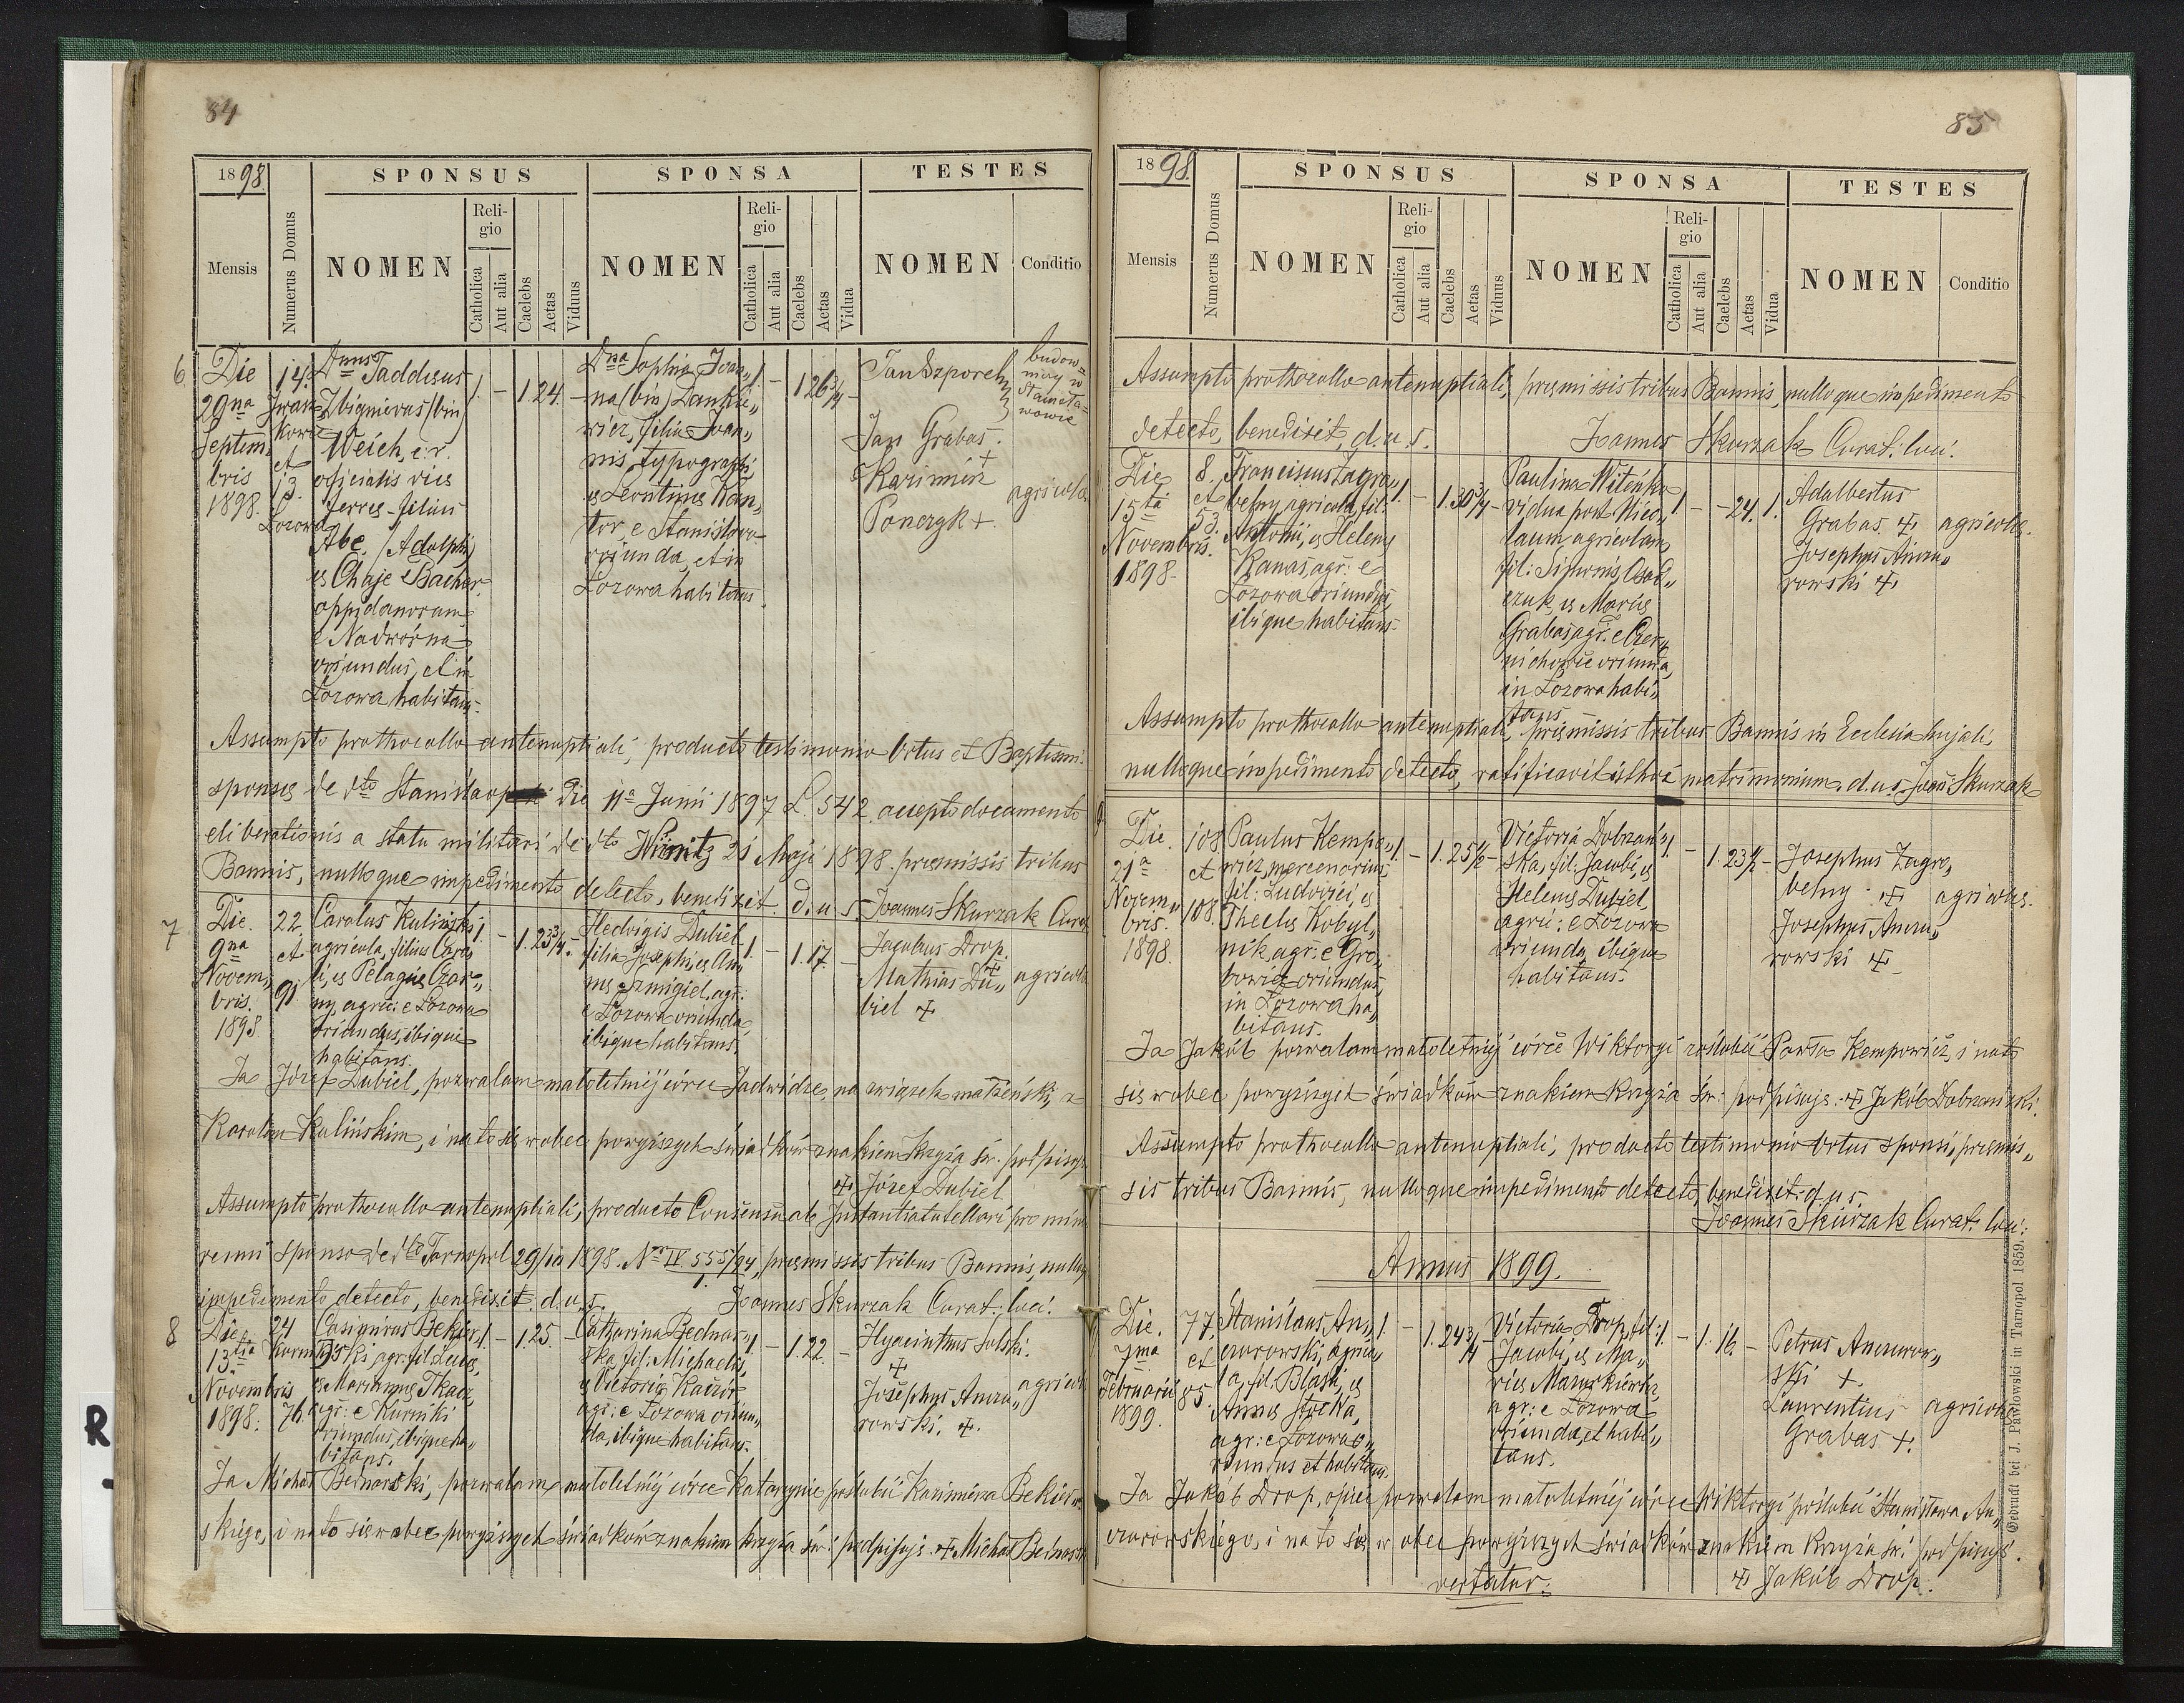 84
1898
SPONSUS
SPONSA
TESTES
Mensis
Numerus Domus
NOMEN
Religio
Catholica
Aut alia
Caelebs
Aetas
Viduus
NOMEN
Religio
Catholica
Aut alia
Caelebs
Aetas
Vidua
NOMEN
Conditio
6
Die
29na
Septem
bris
1898.
14.
et
13.
Lozowa
Dnus Taddeus
Zbignievus (bin)
Weich, c. r.
officialis vies
ferres filius
Abe (Adolphi)
es Chaje Bacher
oppidanorum
e Nadworna
oriundus, et in
Lozowa habitans.
1. – 1. 24. –
Dna Sophia Joan„
na (bin) Dankie„
wicz, filia Joan„
nis, typographi,
es Leontines Kan„
tor, e Stanislavo
oriunda, et in
Lozowa habitans.
1. – 1 26 3/4 –
Jan Szporek
Jan Grabas.
+
Kazimierz
Ponczyk +.
budow„
niczy w
Stanisła„
wowie
agricolae
Assumpto prothocollo antenuptiali, producto testimonio Ortus et Baptismi
sponses de dto Stanislaop die 11a Junii 1897 L. 542. accepto documento
eliberationis a statu militari de dto 21 Maji 1898. premissis tribus
Bannis, nulloque impedimento detecto, benedixit. d. u. s. Joannes Skurzak Curat
7
Die.
9na
Novem„
bris.
1898
22.
et
91
Carolus Kuliński
agricola, filius Caro„
li, es Pelagies Czar„
ny, agric: e Lozowa
oriundus, ibique
habitans.
1. – 1. 23 3/4. –
Hedvigis Dubiel
filia Josephi, es An„
nes Szmigiel, agr:
e Lozowa oriunda
ibique habitans.
1. – 1. 17. –
Jacobus Drop.
+
Mathias Du„
biel +
agricolae
Ja Józef Dubiel, pozwalam małoletniéj córce Jadwidze, na związek małżeński, z
Karolem Kulińskim, i na to się wobec powyższych świadków znakiem krzyża św. podpisuję
+ Józef Dubiel
Assumpto prothocollo antenuptiali, producto Consensu ab Instantia tutellari pro mino„
renni sponso de dto Tarnopol 29/10 1898. No IV 555/94, premissis tribus Bannis, nulloq
impedimento detecto, benedixit. d. u. s. Joannes Skurzak Curat: loci.
8
Die
13tia
Novembris
1898.
24
Kurniki
76.
Casimirus Bekier„
ski, agr: fil: Luces,
es Mariannes Tkacz,
agr: e Kurniki
oriundus, ibique ha„
bitans.
1. – 1. 25. –
Catharina Bednar„
ska, fil: Michaelis,
es Victories Kaczor
agr: e Lozowa oriun„
da, ibique habitans.
1. – 1. 22. –
Hyacinthus Solski.
+
Josephus Anczu„
rowski. +.
agricolae
Ja Michał Bednarski, pozwalam małoletniéj córce Katarzynie poślubić Kazimierza Bekier„
skiego, i na to się wobec powyższych świadków znakiem krzyża św: podpisuję. + Michał Bednarski
85
1898
SPONSUS
SPONSA
TESTES
Mensis
Numerus Domus
NOMEN
Religio
Catholica
Aut alia
Caelebs
Aetas
Viduus
NOMEN
Religio
Catholica
Aut alia
Caelebs
Aetas
Vidua
NOMEN
Conditio
Assumpto prothocollo antenuptiali, premissis tribus Bannis, nulloque impedimento
detecto, benedixit, d. u. s. Joannes Skurzak Curat: loci.
Die
15ta
Novembris.
1898.
8.
et
53.
Franciscus Zagro„
belny, agricola, fil:
Antonii, es Helenes
Kanas, agr: e
Lozowa oriundus,
ibique habitans.
1. – 1. 30 3/4 –
Paulina Witeńko
vidua post Nico„
laum agricolam
fil: Simeonis, Osad„
czuk, es Maries
Grabas, agr: e Czer„
nichowce oriunda,
in Lozowa habi„
tans
1 – – 24. 1.
Adalbertus
Grabas. +
Josephus Anczu„
rowski +
agricolae.
Assumpto prothocollo antenuptiali, premissis tribus Bannis in Ecclesia hujati,
nulloque impedimento detecto, ratificavit isthoc matrimonium. d. u. s. Joan: Skurzak
9.
Die.
21a
Novem„
bris.
1898.
108
et
108.
Paulus Kempo„
wicz, mercenarius,
fil: Ludovici, es
Thecles Kobyl„
nik, agr: e Gro„
bowiec oriundus,
in Lozowa ha„
bitans.
1. – 1. 25 1/2 –
Victoria Dobrzań„
ska, fil: Jacobi, es
Helenes Dubiel,
agric: e Lozowa
oriunda, ibique
habitans.
1. – 1. 23 1/2 –
Josephus Zagro„
belny. +
Josephus Anczu„
rowski +
agricolae.
Ja Jakób pozwalam małoletniéj córce Wiktoryi zaślubić Pawła Kempowicz, i na to
się wobec powyższych świadków znakiem Krzyża św: podpisuję: + Jakób Dobrzański.
Assumpto prothocollo antenuptiali, producto testimonio Ortus sponsi, premis„
sis tribus Bannis, nulloque impedimento detecto, benedixit. d. u. s.
Joannes Skurzak Curat: loci:
Annus 1899.
Die.
7ma
Februarii
1899.
77.
et
85.
Stanislaus An„
czurowski, agrico„
la, fil: Blasii, es
Annes Stocka,
agr: e Lozowa o„
riundus et habitans.
1. – 1. 24 3/4
Victoria Drop, fil:
Jacobi, es Ma„
ries Mazurkiewicz,
agr: e Lozowa
oriunda, et habi„
tans.
1. – 1. 16. –
Petrus Anczurow„
ski +.
Laurentius
Grabas +.
agricolae
Ja Jakób Drop, ojciec pozwalam małoletniéj córce Wiktoryi poślubić Stanisława An„
czurowskiego, i na to się w obec powyższych świadków znakiem Krzyża św: podpisuję.
vertatur: + Jakób Drop.
Gedruckt bei J. Pawłowski in Tarnopol 1859.